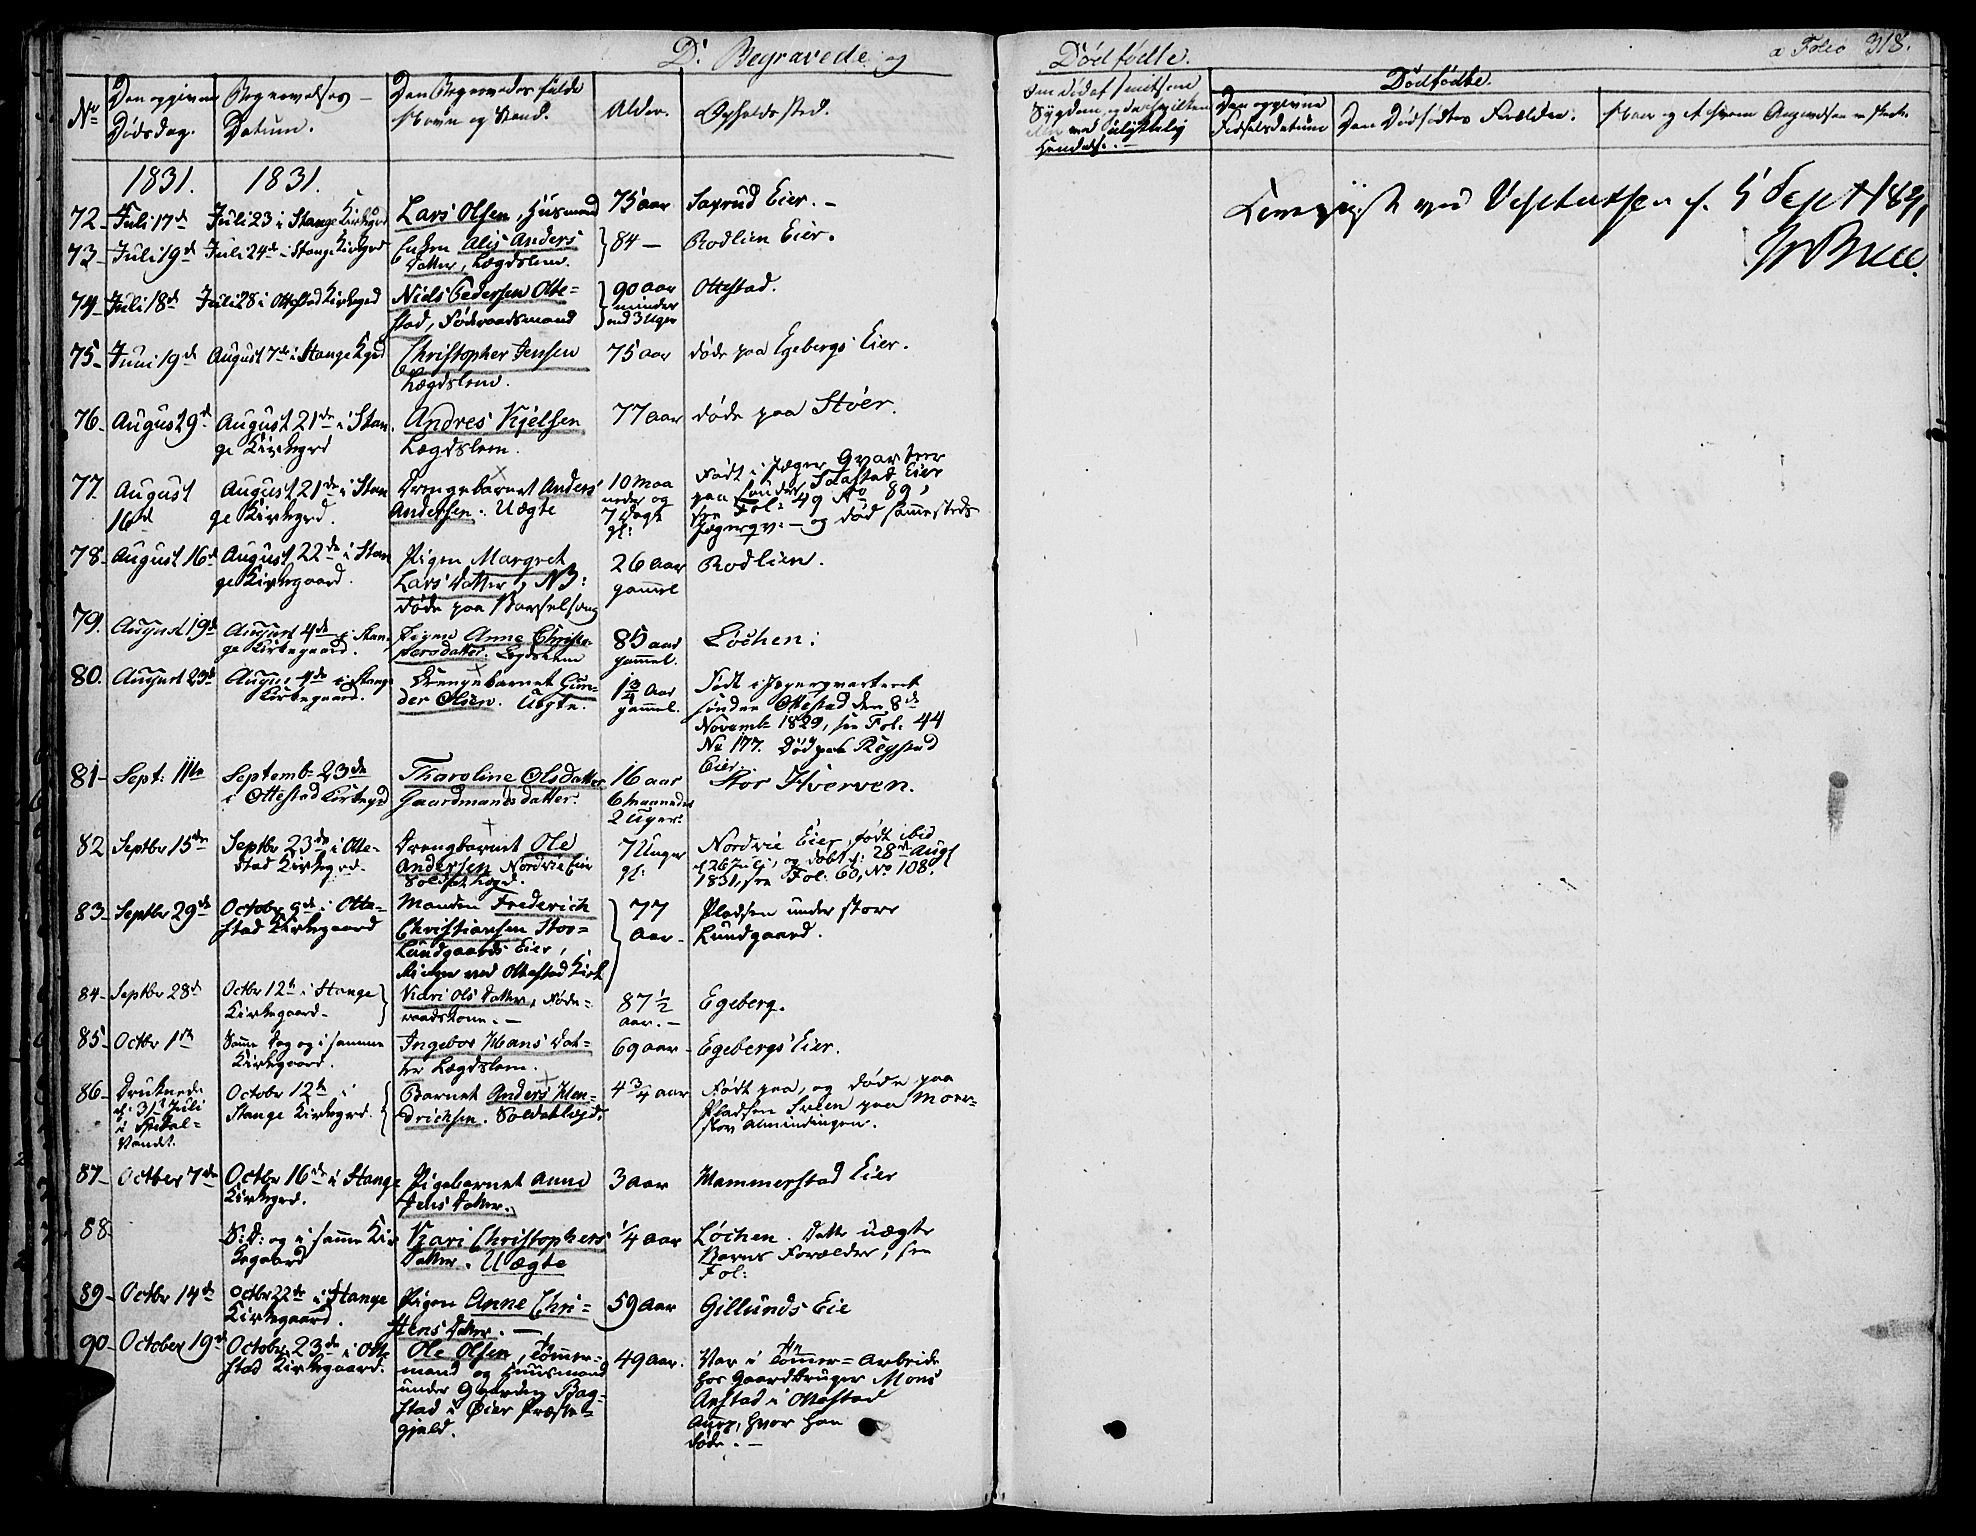 D. Begravede og Dødfødte.
a Folio 318.
No
Den opgivne Dødsdag.
Begravelses-Datum.
Den Begravedes fulde Navn og Stand.
Alder.
Opholdssted.
Dødfødte.
Den opgivne Fødselsdatum
Den Dødfødtes Forældre.
1831. 1831.
72 Juli 17d Juli 23 i Stange Kirkegrd Lars Olsen, Huusmand 75 aar Saxrud Eier. -
73 Juli 19d Juli 24d i Stange Kirkegrd Enken Alis Anders Datter, Lægdslem. 84 - Rodlien Eier.
74 Juli 18d Juli 28 i Ottestad Kirkegrd Niels Pedersen Otte=
stad, Føderaadsmand 90 aar minder end 3 Uger Ottestad.
75 Juni 19d August 7de i Stange Kgrd Christopher Jensen
Lægdslem. 75 aar døde paa Egebergs Eier.
76 August 9d August 21de i Stan
ge Kirkegrd Andres Kjelsen
Lægdslem. 77 aar døde paa Stöer.
77 August 16d August 21de i Stan
ge Kirkegrd. Drengebarnet Anders
Andersen. Uægte 10 maa
neder og 7 Dage gl: Født i Jæger Qvarteer
paa Sønder Eier
see Fol: 49 No 89,
Jægerqv: - og død sammesteds
78 August 16d August 22de i Stan
ge Kirkegaard. Pigen Margret
Lars Datter, NB:
døde paa Barselseng 26 aar
gammel Rodlien.
79. August 19d August 4de i Stan
ge Kirkegaard. Pigen Anne Christo-
fersdatter. Legdslem 85 aar
gammel. Löchen.
80. August 23d August 4de i Stange
Kirkegaard. Drengebarnet Gun-
der Olsen. Uægte. 1 3/4 Aar
gammel. Født i Jægerqvarteret
sønder Ottestad den 8de
Novemb- 1829, see Fol: 44
No 177. Død paa
Eier.
81 Sept: 11te Septemb- 23de
i Ottestad Kirkegrd Tharoline Olsdatter
Gaardmandsdatter. 16 aar
6 maaneder
2 Uger. Stor Hverven.
82 Septbr 15de Septbr 23de i Otte-
stad Kirkegrd. Drengbarnet Ole
Andersen Nordvie Eier
Soldat Lægd. 7 Uger
gl: Nordvie Eier, født ibid
d: 26 Juli, og døbt d: 28de Augt
1831, see Fol: 60, No 108.
83 Septbr 29de Octobr 9de i Otte-
stad Kirkegaard Manden Frederich
Christiansen Stor-
Lundgaards Eier,
ved Ottestad Kirk 77
aar. Pladsen under store
Lundgaard.
84 Septbr 28d Octbr 12te i Stange
Kirkegaard. Kari Ols Datter, Føde=
raadskone. - 87 1/2
aar. - Egeberg.
85 Octbr 1ste Samme Dag og i samme
Kirkegaard. Ingebor Hans Dat=
ter Lægdslem. 69 aar Egebergs Eier.
86 Druknede
d: 31 Juli
i
Vandet. Octobr 12te i
Stange Kirkegrd. Barnet Anders Hen-
drichsen. Soldatlægd. 4 3/4 aar Født paa, og døde paa
Pladsen Sveen paa
Almindingen.
87 October 7de Octbr 16de i Stange
Kirkegrd. Pigebarnet Anne
Jens Datter. 3 aar Hammerstad Eier
88 S: D: og i samme Kir
kegaard Kari Christophers
Datter. Uægte 1/4 aar Löchen. Dette uægte
Barns Forælder, see
Fol:
89 Octbr 14de Octbr 22de i Stange
Kirkegaard. Pigen Anne Chri=
stens Datter. - 59 aar Gillunds Eie
90 October 19d Octobr 23de i Otte
stad Kirkegaard. Ole Olsen, Tømmer-
mand og Huusmand
under Gaarden Bag-
stad i Øier Præste-
gjeld. 49 aar. Var i Tømmer=Arbeide
hos Gaardbruger Mons
Arstad i Ottestad
Annx, hvor han
døde. -
ved Visitatsen d. 5 Sept 1831,